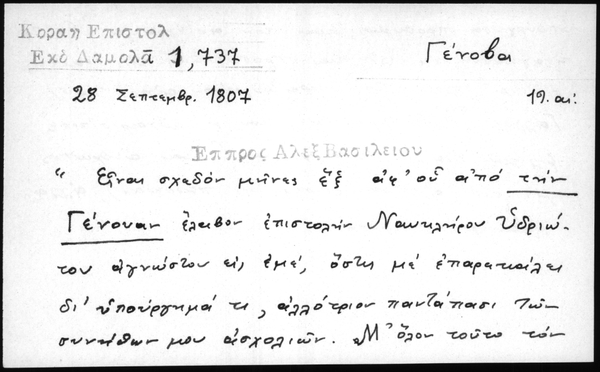 Κοραη Επιστολ
Εκδ Δαμαλᾶ 1,737
Γένοβα
28 Σεπτεμβρ. 1807
19. αι.
Επ προς Αλεξ Βασιλειου
“ Εἶναι σχεδὸν μῆνες ἓξ ἀφ' οὗ ἀπὸ τὴν
Γένουαν ἔλαβον ἐπιστολὴν Ναυκλήρου Ὑδριώ-
του ἀγνώστου εἰς ἐμέ, ὅστις μὲ ἐπαρεκάλει
δι' ὑπούργημά τι, ἀλλότριον παντάπασι τῶν
συνήθων μου ἀσχολιῶν. Μ' ὅλον τοῦτο τὸν